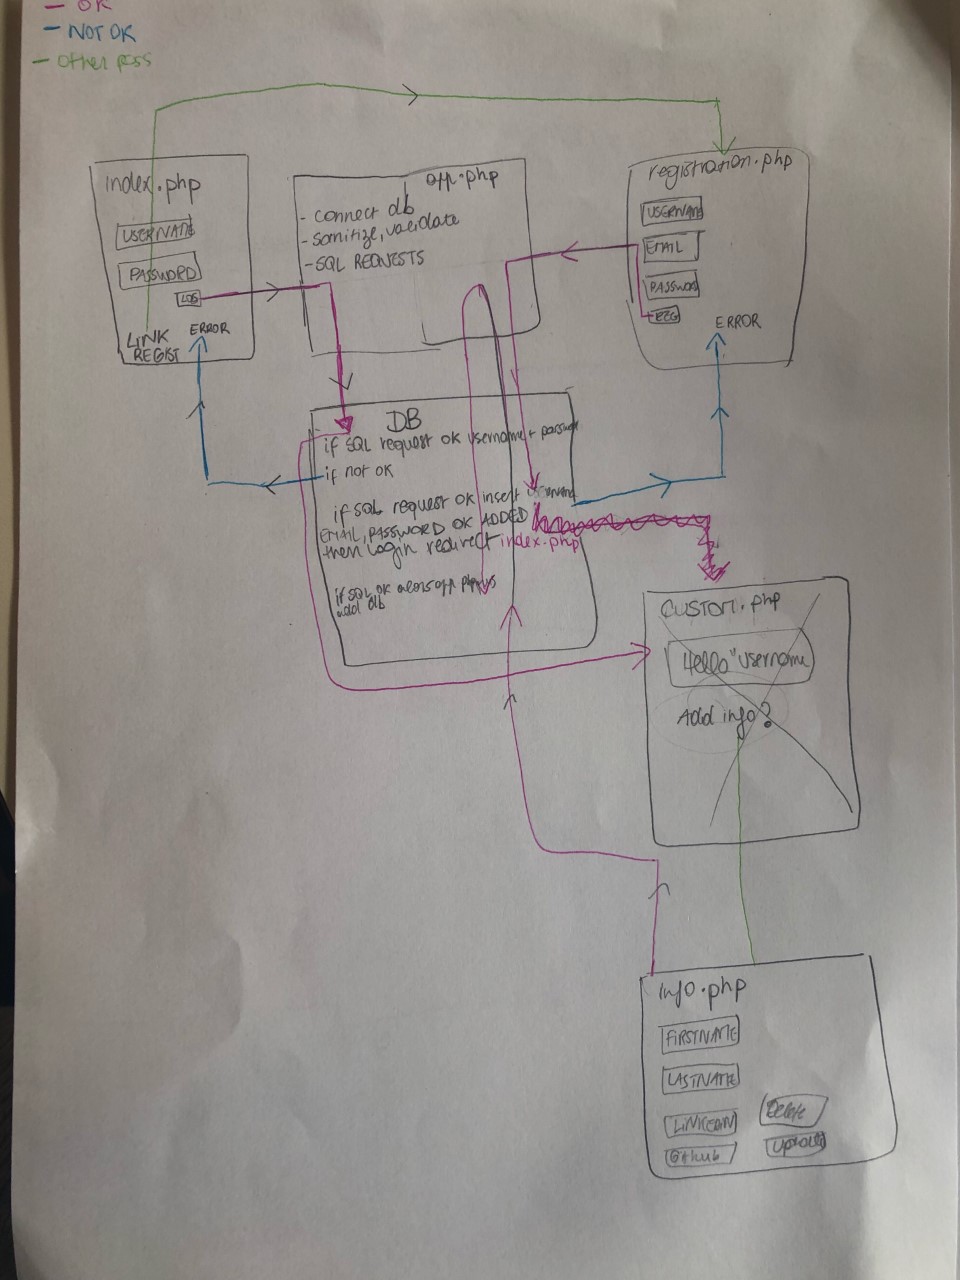 — OK
— NOT OK
— Other poss
index.php
USERNAME
PASSWORD
LOG
LINK
REGIST
ERROR
app.php
- connect db
- sanitize, validate
- SQL REQUESTS
registration.php
USERNAME
EMAIL
PASSWORD
REG
ERROR
DB
if SQL request OK username + password
if not OK
if SQL request OK insert username
EMAIL, PASSWORD OK ADDED
then Login redirect index.php
if SQL OK alors app.php
add db
CUSTOM.php
Hello "username
Add info?
info.php
FIRSTNAME
LASTNAME
LINKEDIN
Github
Delete
Upload